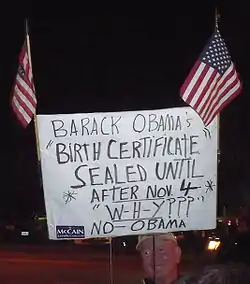 BARACK OBAMA's
"BIRTH CERTIFICATE"
SEALED UNTIL
* AFTER NOV. 4 *
"W-H-Y???"
NO-OBAMA
McCAIN